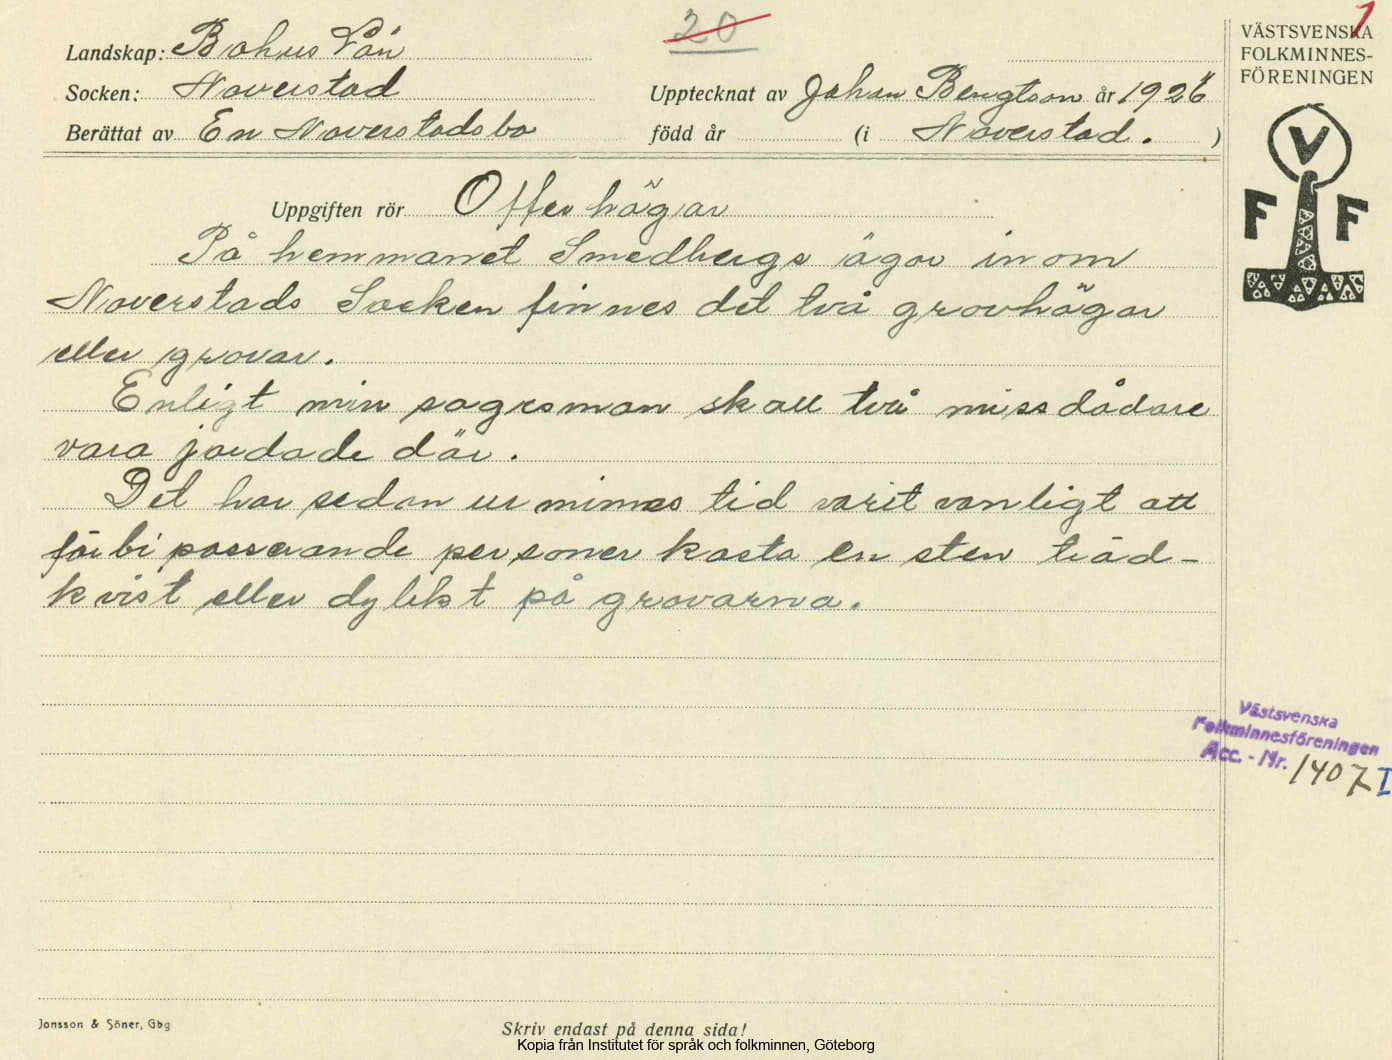 20
1
Landskap: Bohus Län
Socken: Naverstad
Berättat av En Naverstadsbo
Upptecknat av Johan Bengtson år 1926
född år (i Naverstad. )
VÄSTSVENSKA
FOLKMINNES-
FÖRENINGEN
V
F F
Uppgiften rör Offerhögar
På hemmanet Smedbergs ägor inom
Naverstads Socken finnes det två gravhögar
eller gravar.
Enligt min sagesman skall två missdådare
vara jordade där.
Det har sedan urminnes tid varit vanligt att
förbi passerande personer kasta en sten träd-
kvist eller dylikt på gravarna.
Västsvenska
Folkminnesföreningen
Acc. - Nr. 1407 I
Jonsson & Söner, Gbg
Skriv endast på denna sida!
Kopia från Institutet för språk och folkminnen, Göteborg